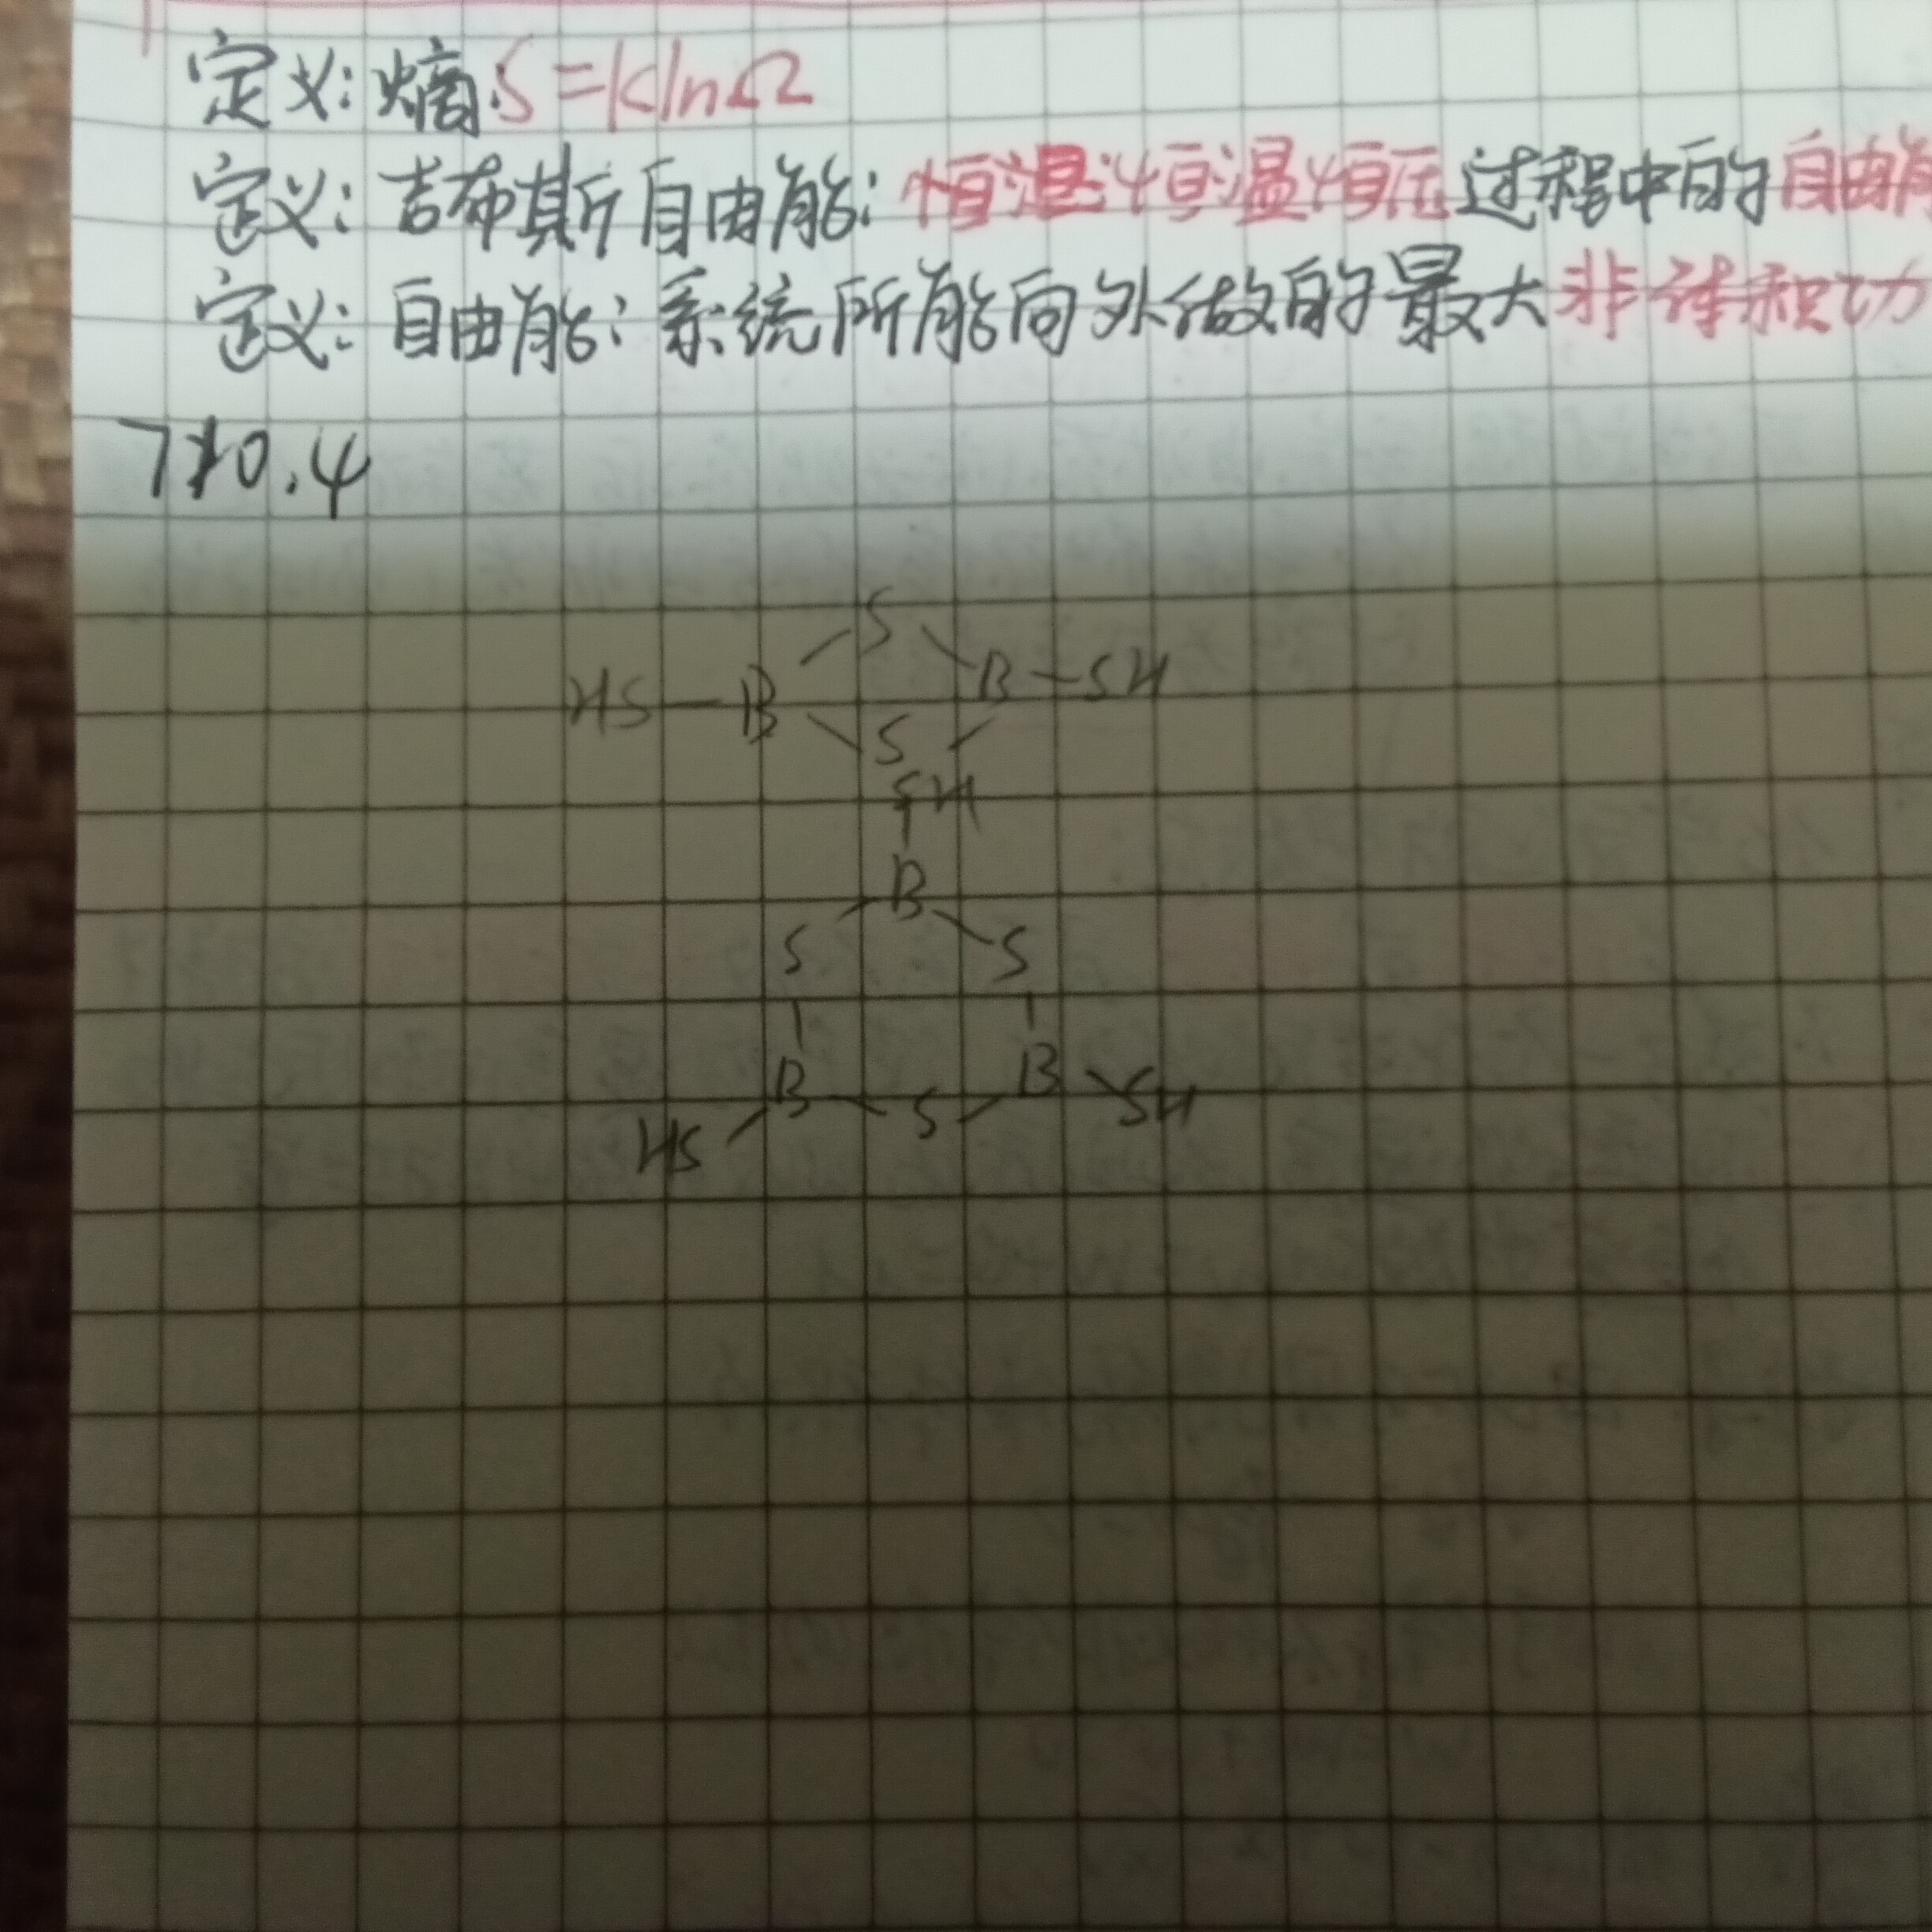 定义:熵:S=klnΩ
定义:吉布斯自由能:恒温恒温恒压过程中的自由
定义:自由能:系统所能向外做的最大非体积功
710.4
S
HS—B B—SH
S
SH
B
S S
B B
HS S SH